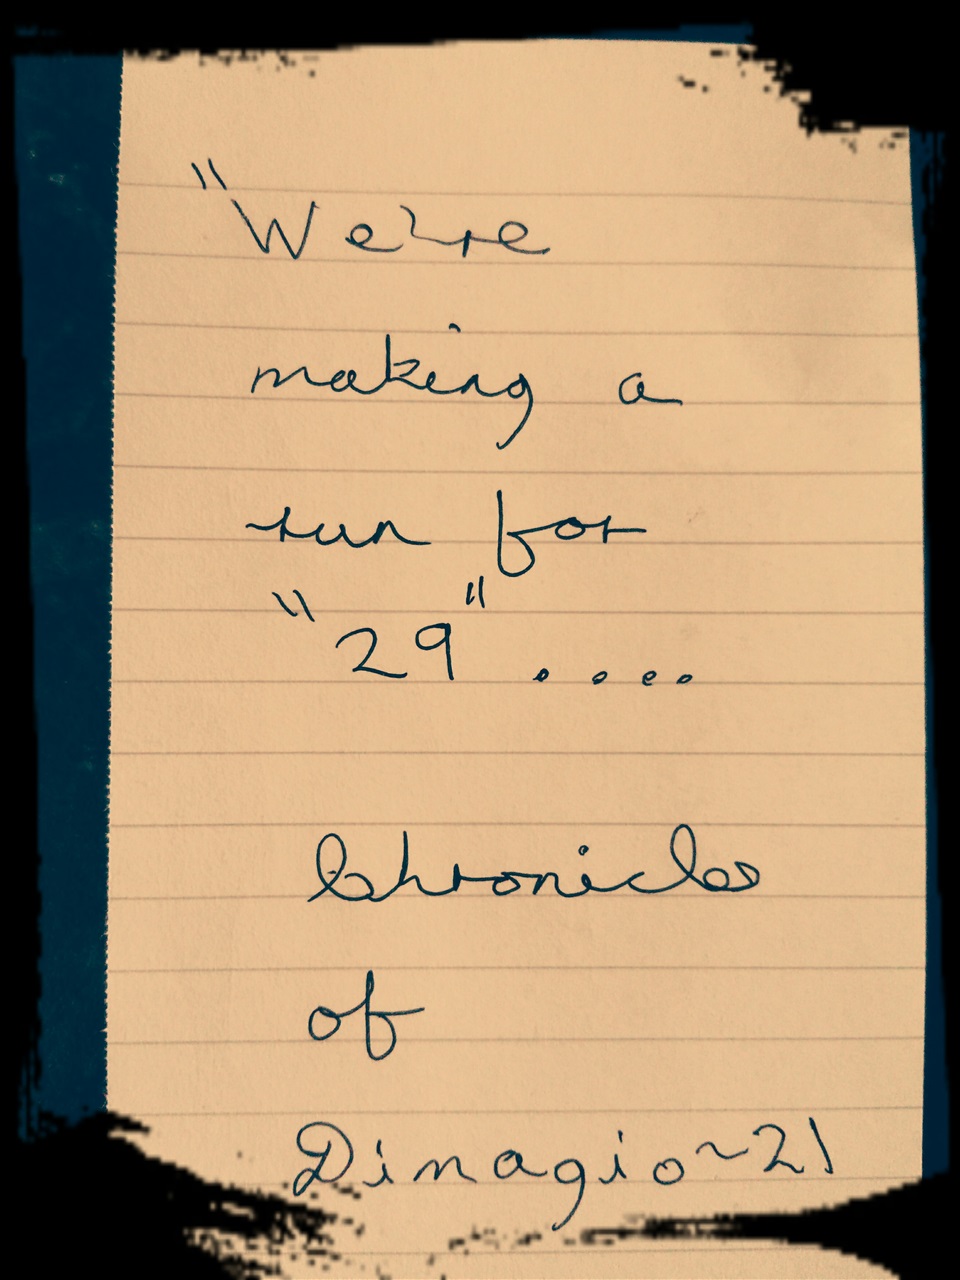 "We're
making a
run for
"29" ....
Chronicles
of
Dimagio~21